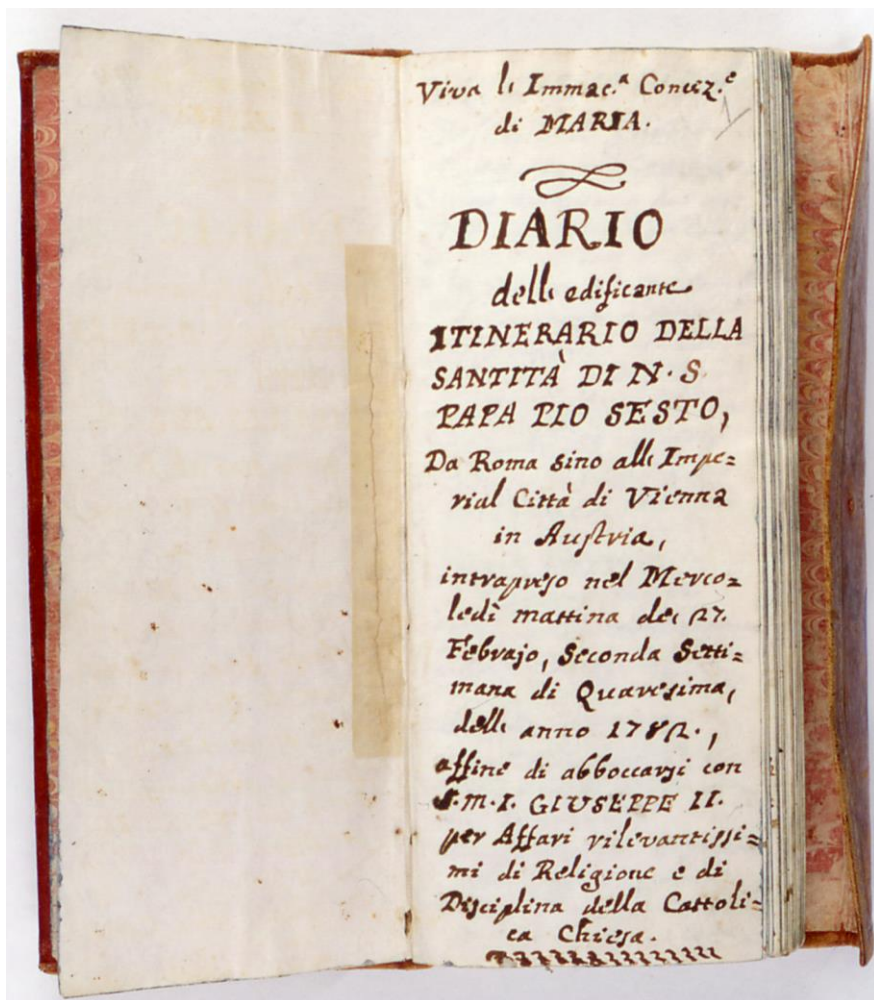 Viva l' Immac.ª Concez.e
1
di MARIA.
DIARIO
dell' edificante
ITINERARIO DELLA
SANTITÀ DI N. S.
PAPA PIO SESTO,
Da Roma sino all' Impe=
rial Città di Vienna
in Austria,
intrapreso nel Merco=
ledì mattina de' 27.
Febrajo, Seconda Setti=
mana di Quaresima,
dell' anno 1782.,
affine di abboccarsi con
S. M. I. GIUSEPPE II.
per Affari rilevantissi=
mi di Religione e di
Disciplina della Cattoli=
ca Chiesa.